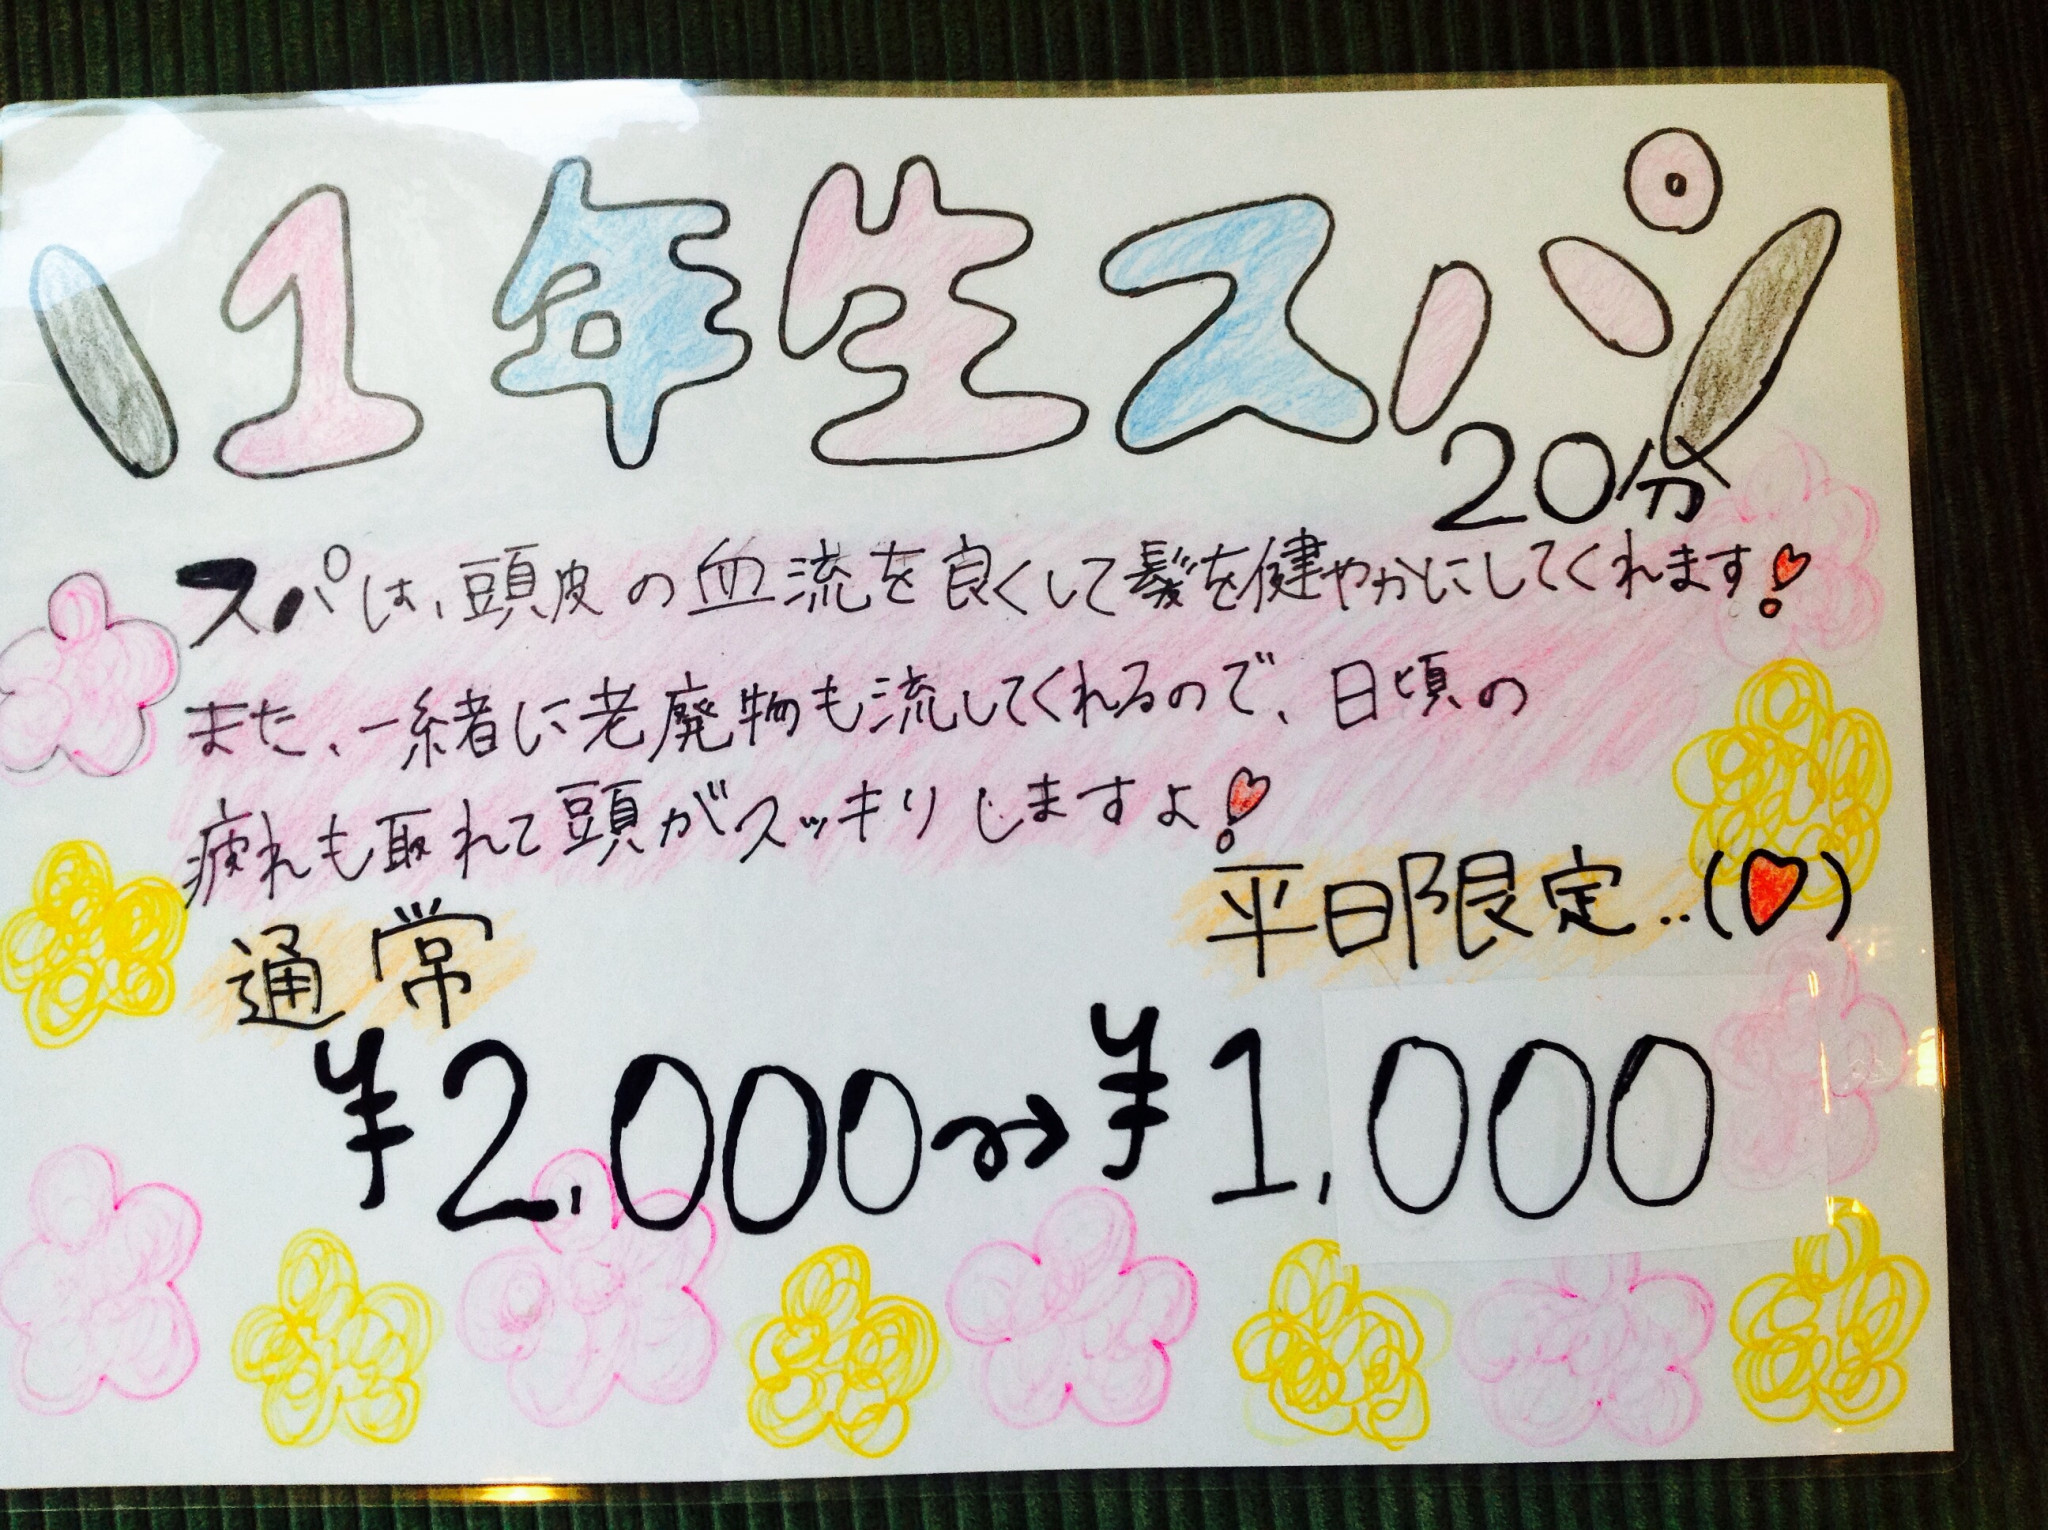 \1年生スパ/
20分
スパは、頭皮の血流を良くして髪を健やかにしてくれます!
また、一緒に老廃物も流してくれるので、日頃の
疲れも取れて頭がスッキリしますよ!
通常
平日限定..(♥)
¥2,000→¥1,000